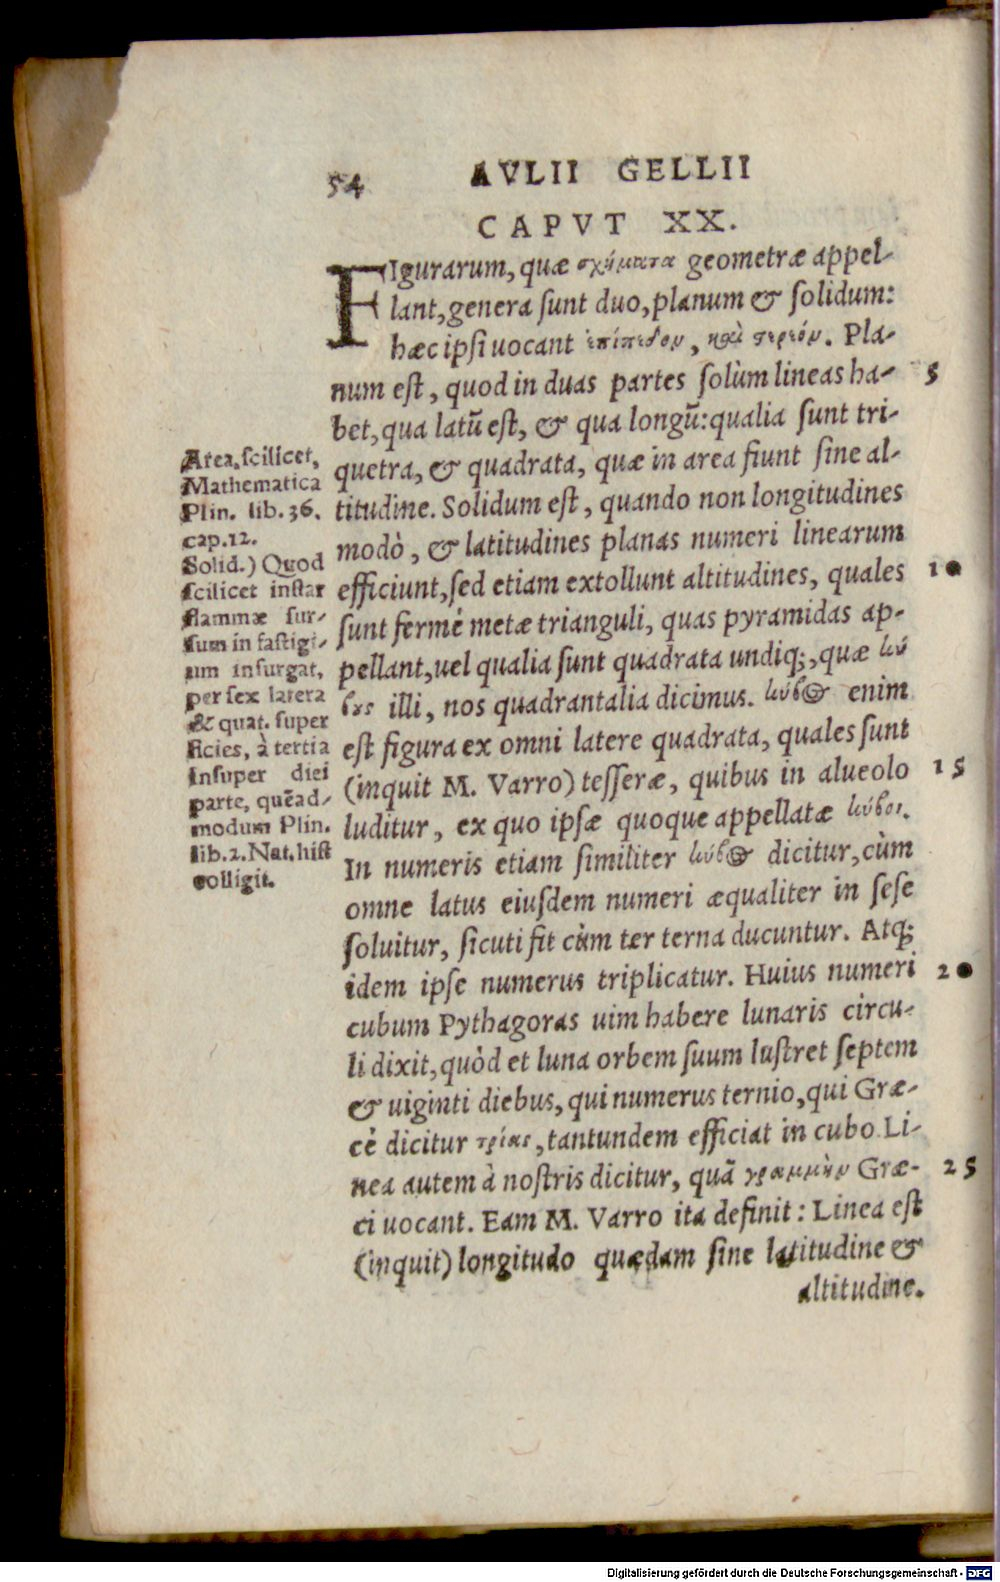 54 AVLII GELLII
CAPVT XX.
FIgurarum, quæ σχήματα geometræ appel-
lant, genera ſunt duo, planum & ſolidum:
hæc ipſi uocant ἐπίπεδον, καὶ στερεόν. Pla-
num eſt, quod in duas partes ſolùm lineas ha-
5
bet, qua latũ eſt, & qua longũ: qualia ſunt tri-
quetra, & quadrata, quæ in area fiunt ſine al-
titudine. Solidum eſt, quando non longitudines
modò, & latitudines planas numeri linearum
efficiunt, ſed etiam extollunt altitudines, quales
10
ſunt fermè metæ trianguli, quas pyramidas ap-
pellant, uel qualia ſunt quadrata undiq;, quæ κύ
βȣς illi, nos quadrantalia dicimus. κύβ@ enim
eſt figura ex omni latere quadrata, quales ſunt
(inquit M. Varro) teſſeræ, quibus in alueolo
15
luditur, ex quo ipſæ quoque appellatæ κύβοι.
In numeris etiam ſimiliter κύβ@ dicitur, cùm
omne latus eiuſdem numeri æqualiter in ſeſe
ſoluitur, ſicuti fit cùm ter terna ducuntur. Atq;
idem ipſe numerus triplicatur. Huius numeri
20
cubum Pythagoras uim habere lunaris circu-
li dixit, quòd et luna orbem ſuum luſtret ſeptem
& uiginti diebus, qui numerus ternio, qui Græ-
cè dicitur τρίας, tantundem efficiat in cubo. Li-
nea autem à noſtris dicitur, quã γραμμὴν Græ-
25
ci uocant. Eam M. Varro ita definit: Linea eſt
(inquit) longitudo quædam ſine latitudine &
altitudine.
Area, ſcilicet,
Mathematica
Plin. lib. 36.
cap. 12.
Solid.) Quod
ſcilicet inſtar
flammæ ſur-
ſum in faſtigi-
um inſurgat,
per ſex latera
& quat. ſuper
ficies, à tertia
inſuper diei
parte, quẽad-
modum Plin.
lib. 2. Nat. hiſt
colligit.
Digitalisierung gefördert durch die Deutsche Forschungsgemeinschaft - DFG